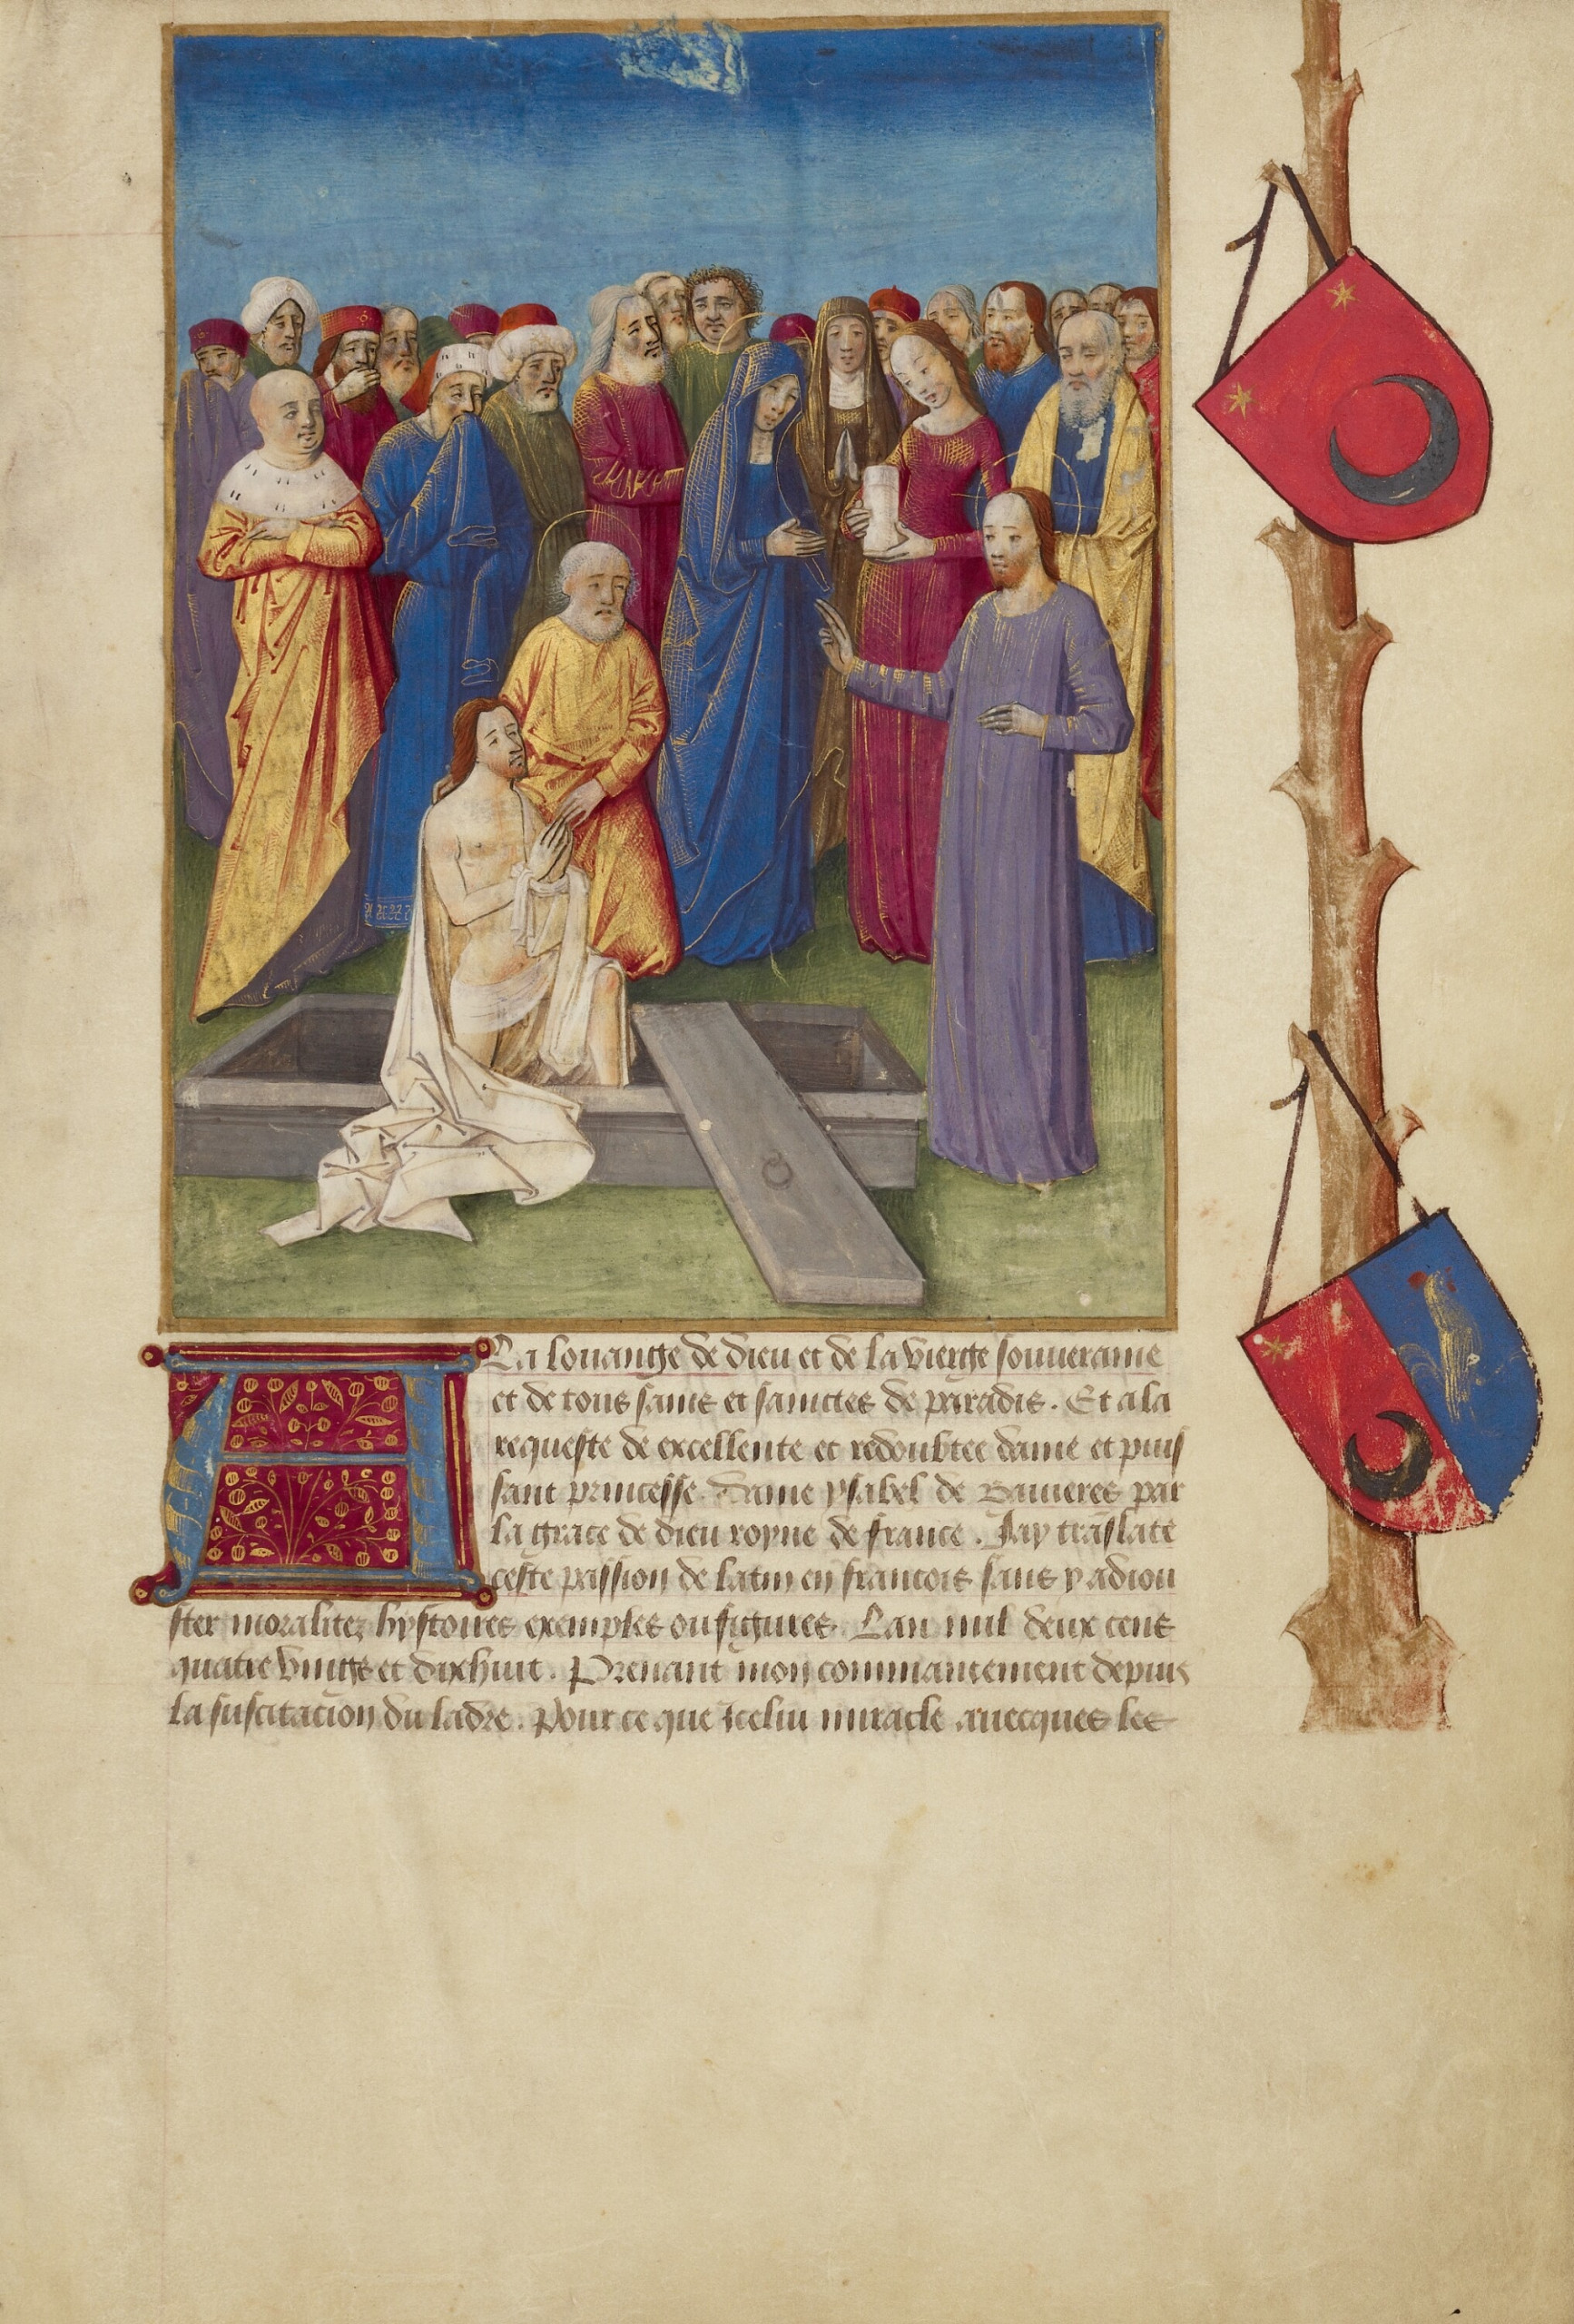 A La louange de dieu et de la vierge souueraine
et de tous sains et sainctes de paradis. Et a la
requeste de excellente et redoubtee dame et puis
sant princesse. dame ysabel de Bauieres par
la grace de dieu royne de france. Jay traslate
ceste passion de latin en francois sans y adiou
ster moralitez hystoires exemples ou figures. Lan mil deux cens
quatre vingts et dixhuit. Prenant mon commancement depuis
la suscitacion du ladre. Pour ce que Icelui miracle auecques les